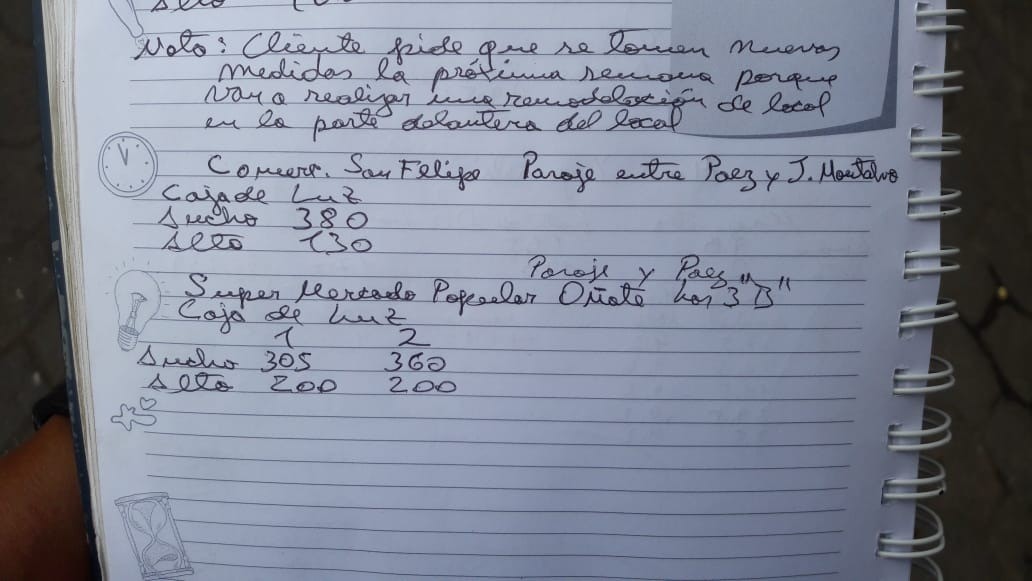 Alto
Nota: Cliente pide que se tomen nuevas
medidas la próxima semana porque
van a realizar una remodelación de local
en la parte delantera del local
Comerc. San Felipe Paroje entre Paez y J. Montalvo
Caja de Luz
Ancho 380
Alto 130
Paroje y Paez
Super Mercado Popular Oñate Las 3 "B"
Caja de Luz
1 2
Ancho 305 360
Alto 200 200